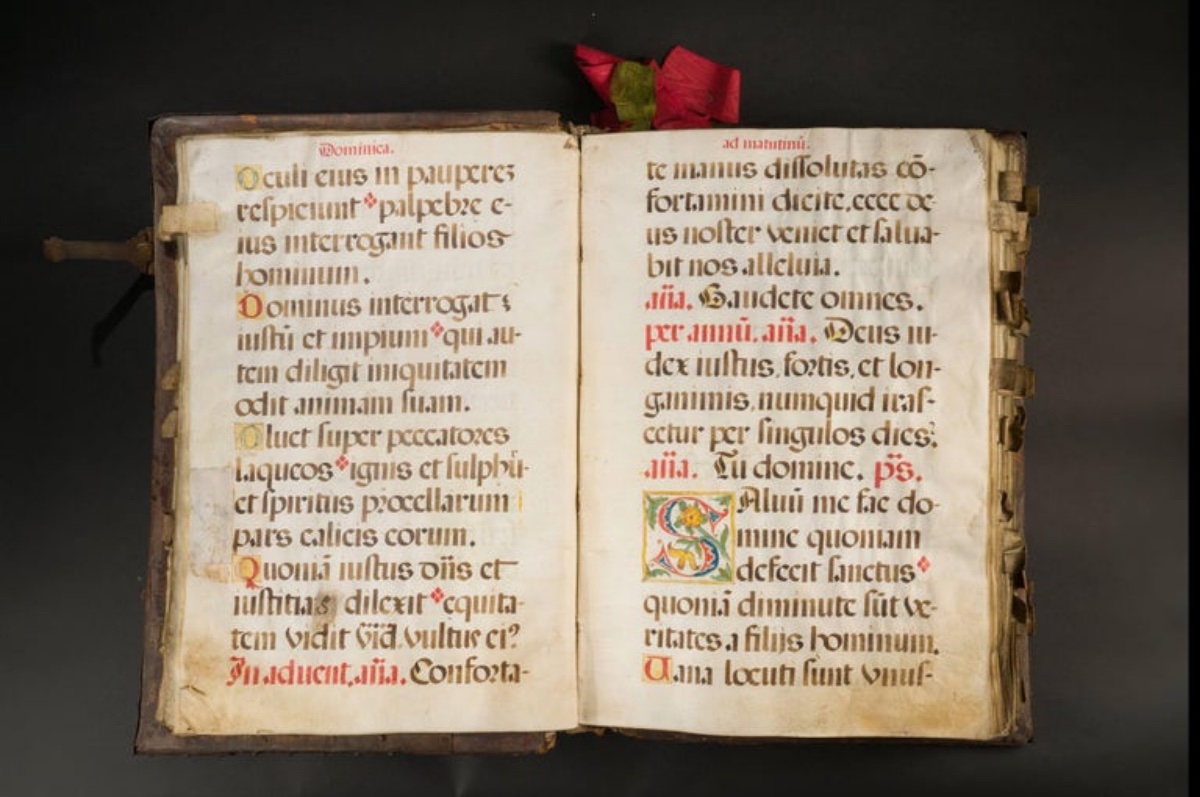 Dominica.
Oculi eius in pauperez
respiciunt palpebre e-
ius interrogant filios
hominum.
Dominus interrogat ⁊
iustū et impium qui au-
tem diligit iniquitatem
odit animam suam.
Pluet super peccatores
laqueos ignis et sulphū-
et spiritus procellarum
pars calicis eorum.
Quoniā iustus dñs et
iustitias dilexit equita-
tem vidit vultus ei⁹
In aduent. aña. Conforta-
ad matutinū.
te manus dissolutas cō-
fortamini dicite, ecce de-
us noster veniet et salua-
bit nos alleluia.
aña. Gaudete omnes.
per annū. aña. Deus iu-
dex iustus, fortis, et lon-
ganimis, numquid iras-
cetur per singulos dies?
aña. Tu domine. ps.
SAluū me fac do-
mine quoniam
defecit sanctus
quoniā diminute sūt ve-
ritates a filijs hominum.
Uana locuti sunt vnus-